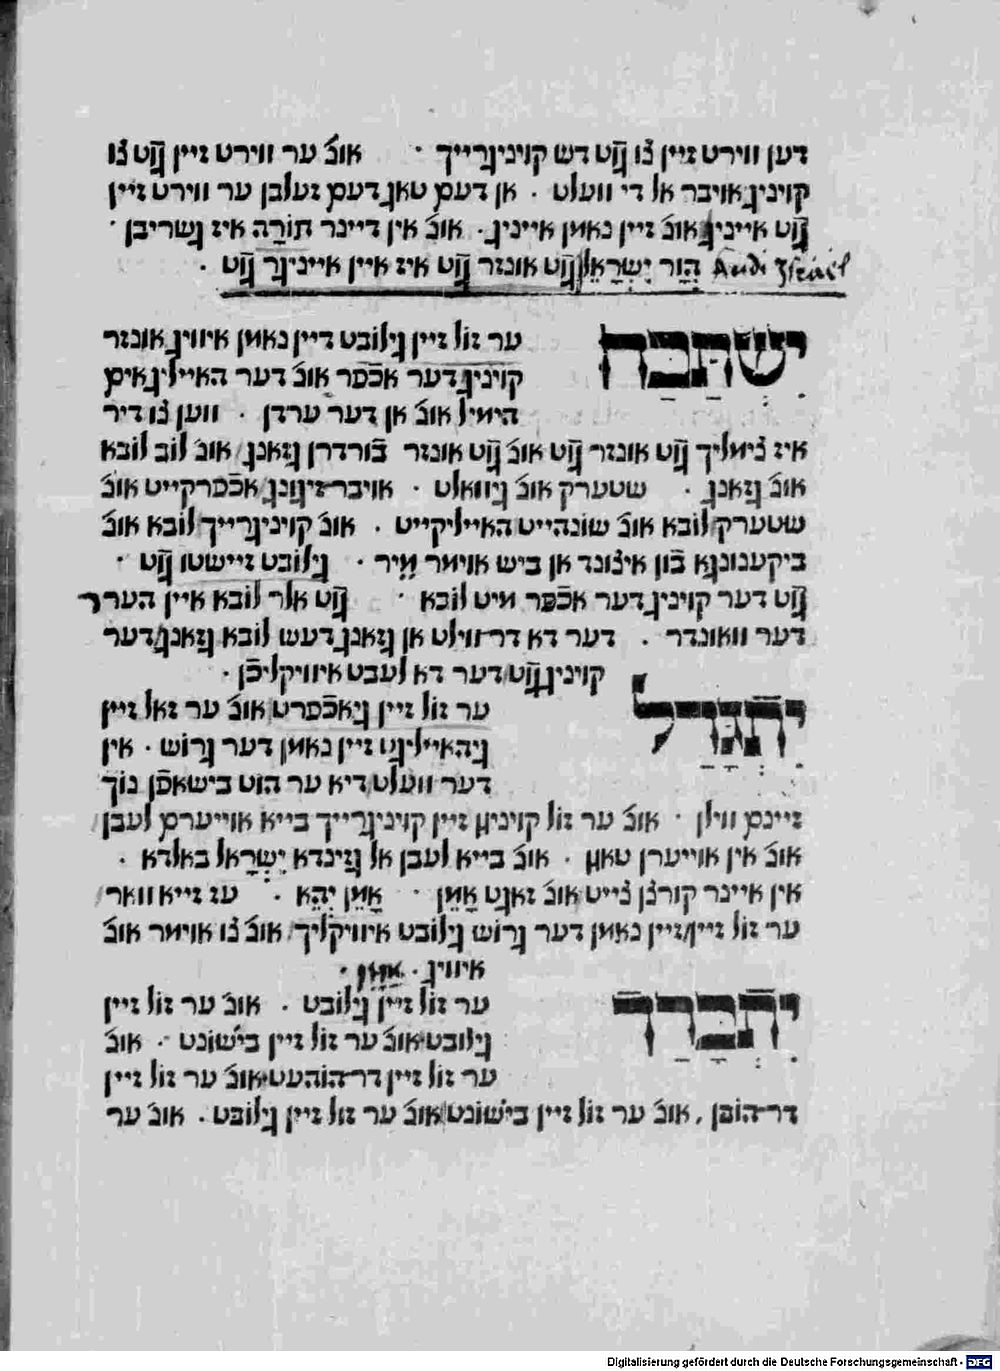 דען ווירט זיין צו גוט דש קוינינגרייך · אונ' ער ווירט זיין גוט צו
קוינינג אויבר אל די וועלט · אן דעם טאג דעם זעלבן ער ווירט זיין
גוט אייניג אונ' זיין נאמן אייניג · אונ' אין דיינר תוֹרָה איז גשריבן ·
הור יִשְרָאֵל גוט אונזר גוט איז איין אייניגר גוט · Audi Israel
יִשְתַבַח ער זול זיין גילובט דיין נאמן איוויג אונזר
קויניג דער אכפר אונ' דער הייליג אים
הימיל אונ' אן דער ערדן · ווען צו דיר
איז צימליך גוט אונזר גוט אונ' גוט אונזר בורדרן גזאנג אונ' לוב לובא
אונ' גזאנג · שטערק אונ' גיוואלט · אויבר זיגונג אכפרקייט אונ'
שטערק לובא אונ' שונהייט האייליקייט · אונ' קוינינגרייך לובא אונ'
ביקענונגא בון איצונד אן ביש אוימר מיר · גילובט זיישטו גוט ·
גוט דער קויניג דער אכפר מיט לובא · גוט אלר לובא איין הערר
דער וואונדר · דער דא דר ווילט אן גזאנג דעש לובא גזאנג דער
קויניג גוט דער דא לעבט איוויקליכן ·
יִתְגַדַל ער זול זיין גיאכפרט אונ' ער זאל זיין
גיהאייליגט זיין נאמן דער גרוש · אין
דער וועלט דיא ער הוט בישאפן נוך
זיינם ווילן · אונ' ער זול קויניגן זיין קוינינגרייך בייא אוייערם לעבן
אונ' אין אוייערן טאגן · אונ' בייא לעבן אל גזינדא יִשְרָאֵל באלדא ·
אין איינר קורצן צייט אונ' זאגט אָמֵן · אָמֵן יְהֵא · עז זייא וואר
ער זול זיין זיין נאמן דער גרוש גילובט איוויקליך אונ' צו אוימר אונ'
איוויג · אמן ·
יִתְבָרַךְ ער זול זיין גילובט · אונ' ער זול זיין
גילובט אונ' ער זול זיין בישונט · אונ'
ער זול זיין דר הוהעט אונ' ער זול זיין
דר הובן, אונ' ער זול זיין בישונט אונ' ער זול זיין גילובט · אונ' ער
Digitalisierung gefördert durch die Deutsche Forschungsgemeinschaft - DFG